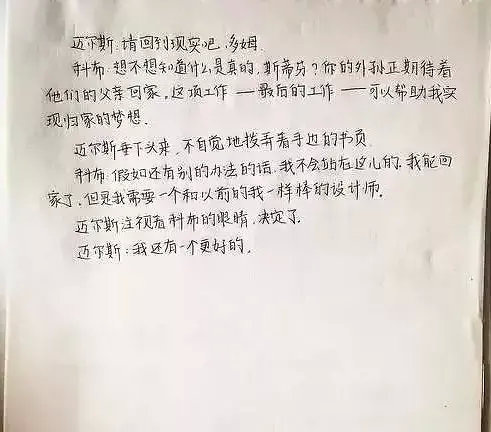 迈尔斯:请回到现实吧,多姆.
科布:想不想知道什么是真的,斯蒂芬?你的外孙正期待着
他们的父亲回家,这项工作——最后的工作——可以帮助我实
现归家的梦想.
迈尔斯垂下头来,不自觉地拨弄着手边的书页
科布:假如还有别的办法的话,我不会站在这儿的.我能回
家了,但是我需要一个和以前的我一样棒的设计师.
迈尔斯注视着科布的眼睛,决定了.
迈尔斯:我还有一个更好的.